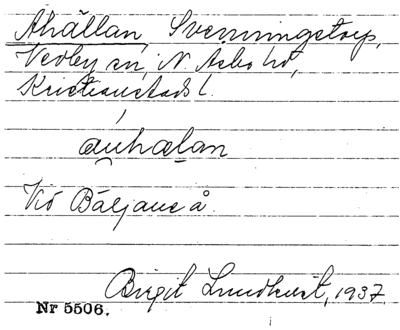 Ahällan, Svenningstorp,
Vedby sn, N. Åsbo hd,
Kristianstads l.
áu̯hælan
Vid Bäljane å.
Birgit Lundkvist, 1937.
Nr 5506.